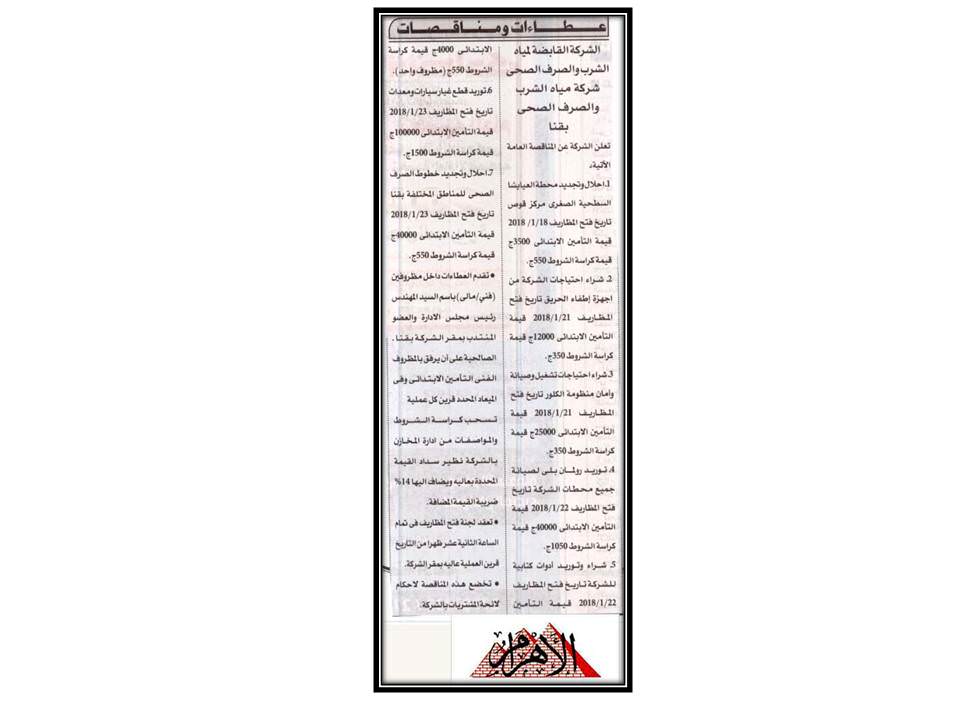 عطاءات ومناقصات
الشركة القابضة لمياه
الشرب والصرف الصحى
شركة مياه الشرب
والصرف الصحى
بقنا
تعلن الشركة عن المناقصة العامة
الآتية:
1. احلال وتجديد محطة العيايشا
السطحية الصغرى مركز قوص
تاريخ فتح المظاريف 18/ 1/ 2018
قيمة التأمين الابتدائى 3500ج
قيمة كراسة الشروط 550ج.
2. شراء احتياجات الشركة من
اجهزة إطفاء الحريق تاريخ فتح
المظاريف 2018/1/21 قيمة
التأمين الابتدائى 12000ج قيمة
كراسة الشروط 350ج.
3. شراء احتياجات تشغيل وصيانة
وامان منظومة الكلور تاريخ فتح
المظاريف 2018/1/21 قيمة
التأمين الابتدائى 25000ج قيمة
كراسة الشروط 350ج.
4. توريد رولمان بلى لصيانة
جميع محطات الشركة تاريخ
فتح المظاريف 2018/1/22 قيمة
التأمين الابتدائى 40000ج قيمة
كراسة الشروط 1050ج.
5. شراء وتوريد أدوات كتابية
للشركة تاريخ فتح المظاريف
2018/1/22 قيمة التأمين
الابتدائى 4000ج قيمة كراسة
الشروط 550ج (مظروف واحد).
6. توريد قطع غيار سيارات ومعدات
تاريخ فتح المظاريف 2018/1/23
قيمة التأمين الابتدائى 100000ج
قيمة كراسة الشروط 1500ج.
7. احلال وتجديد خطوط الصرف
الصحى للمناطق المختلفة بقنا
تاريخ فتح المظاريف 2018/1/23
قيمة التأمين الابتدائى 40000ج
قيمة كراسة الشروط 550ج.
• تقدم العطاءات داخل مظروفين
(فني/مالى) باسم السيد المهندس
رئيس مجلس الادارة والعضو
المنتدب بمقر الشركة بقنا.
الصالحية على أن يرفق بالمظروف
الفنى التأمين الابتدائى وفى
الميعاد المحدد قرين كل عملية
تسحب كراسة الشروط
والمواصفات من ادارة المخازن
بالشركة نظير سداد القيمة
المحددة بعاليه ويضاف اليها 14%
ضريبة القيمة المضافة.
• تعقد لجنة فتح المظاريف فى تمام
الساعة الثانية عشر ظهرا من التاريخ
قرين العملية عاليه بمقر الشركة.
• تخضع هذه المناقصة لاحكام
لائحة المشتريات بالشركة.
الأهرام